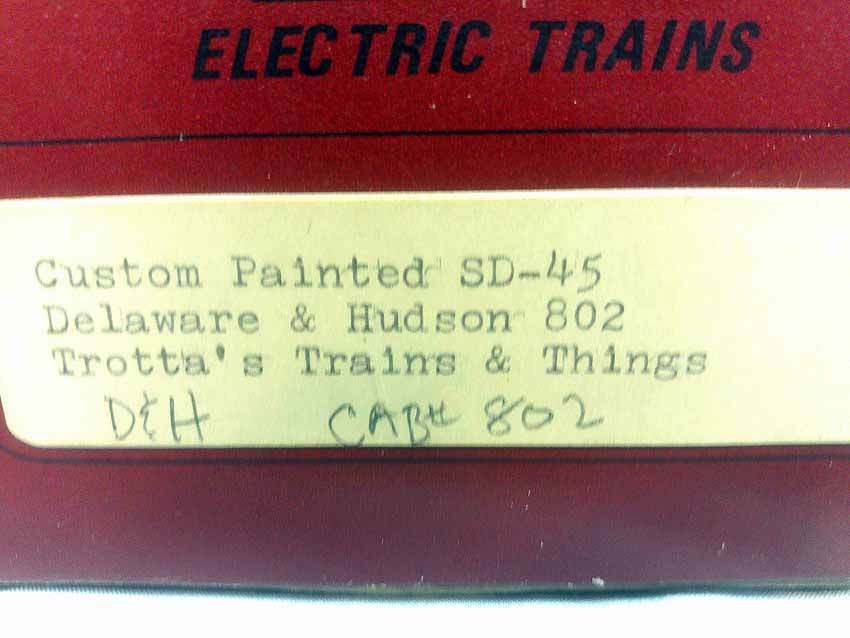 ELECTRIC TRAINS
Custom Painted SD-45
Delaware & Hudson 802
Trotta's Trains & Things
D&H CAB# 802